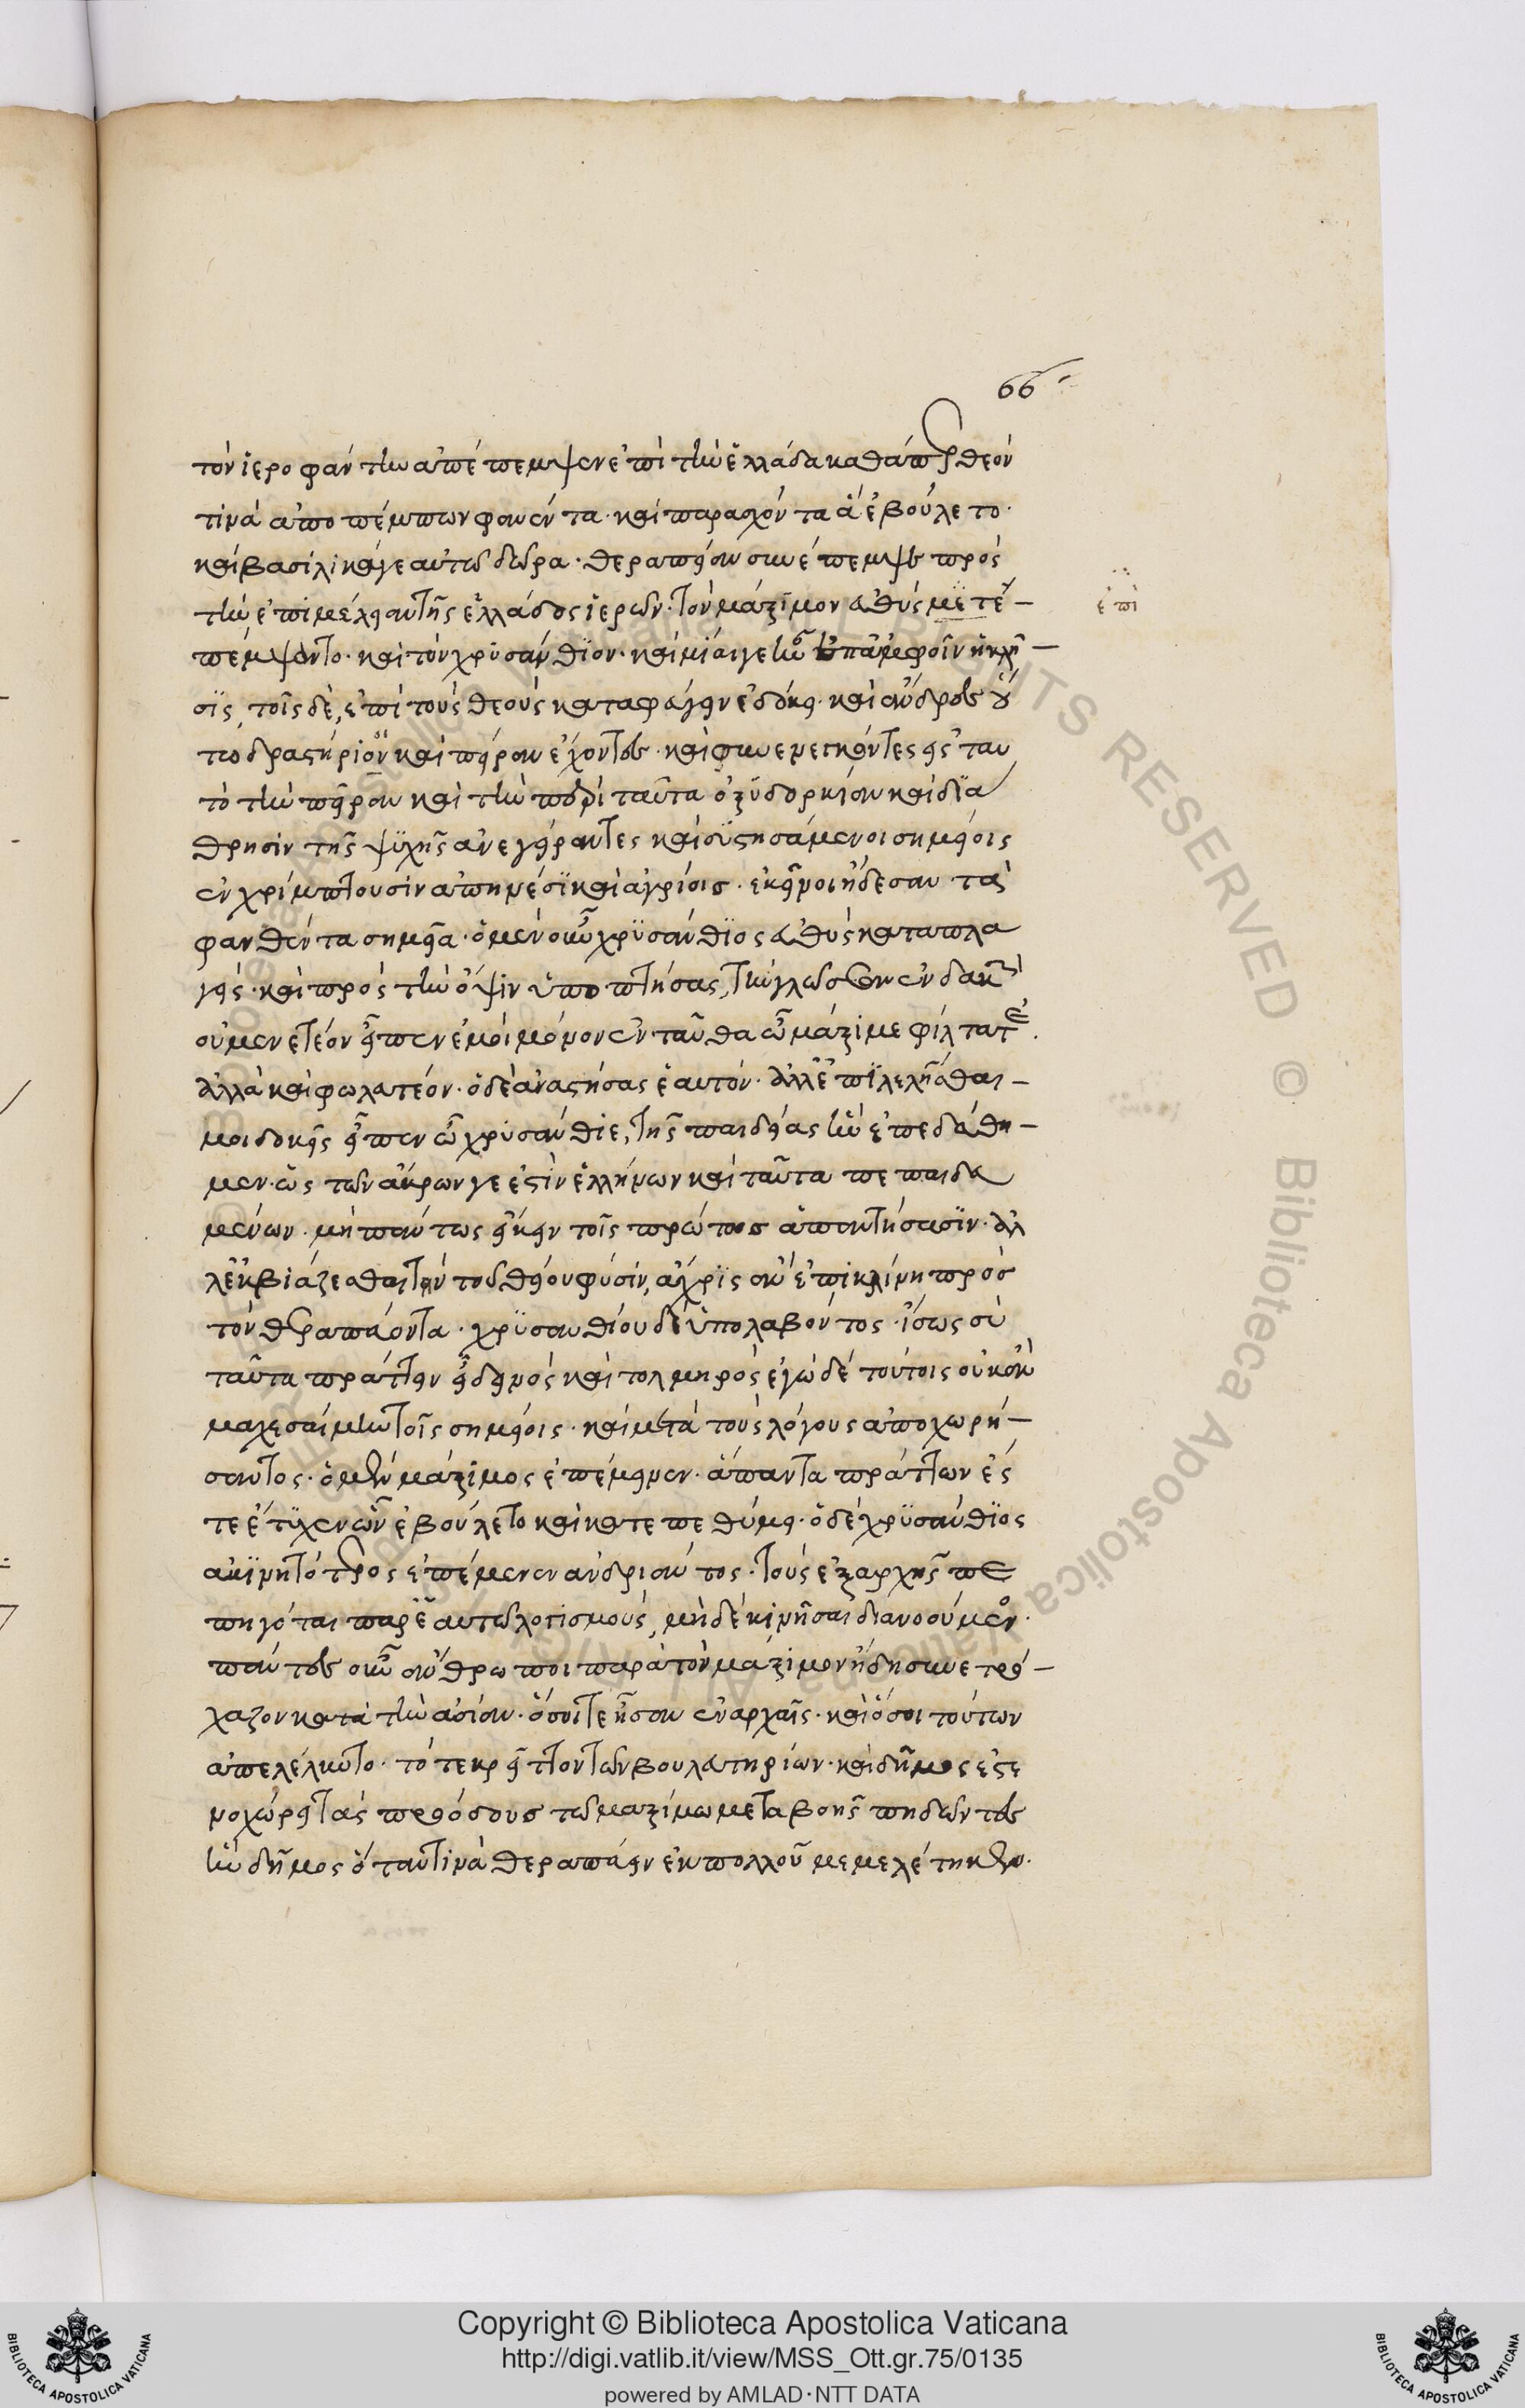 66
τὸν ἱεροφάντην ἀπέπεμψεν ἐπὶ τὴν ἑλλάδα καθάπερ θεόν
τινὰ ἀποπέμπων φανέντα· καὶ παρασχόντα ἃ ἐβούλετο·
καὶ βασιλικά γε αὐτῶ δῶρα· θεραπείαν συνέπεμψε πρὸς
τὴν ἐπιμέλειαν τῆς ἑλλάδος ἱερῶν· τὸν μάξιμον εὐθὺς μετε
ἐπὶ
πέμψαντο· καὶ τὸν χρυσάνθιον· καὶ μία γε ἦν ἐπ' ἀμφοῖν ἡ κλῆ
σις, τοῖς δὲ, ἐπὶ τοὺς θεοὺς καταφεύγειν ἐδόκει· καὶ ἄνδρες οὕ
τω δραστήριον καὶ πείραν ἔχοντες· καὶ συνενεγκόντες εἰς ταυ
τὸ τὴν πεῖραν καὶ τὴν περὶ ταῦτα ὀξυδορκίαν καὶ δια
θρησιν τῆς ψυχῆς ἀνεγείραντες καὶ συστησάμενοι σημείοις
ἐγχρίμπτουσιν ἀπηνέσι καὶ ἀγρίοις· ἐκεῖνοι ἤδεσαν τὰ
φανθέντα σημεῖα· ὁ μὲν οὖν χρυσάνθιος εὐθὺς καταπλα
γεὶς· καὶ πρὸς τὴν ὄψιν ὑποπτήσας, τὴν γλῶσσαν ἐνδακὼν
οὐ μενετέον εἶπεν ἐμοὶ μόνον ἐνταῦθα ὦ μάξιμε φίλτατε.
ἀλλὰ καὶ φωλατέον· ὁ δὲ ἀναστήσας ἑαυτὸν· ἀλλ' ἐπιλελῆσθαι
μοι δοκεῖς εἶπεν ὦ χρυσάνθιε, τῆς παιδείας ἣν ἐπεδεύθη
μεν· ὡς τῶν ἄκρων γε ἐστὶν ἑλλήνων καὶ ταῦτα πεπαιδευ
μένων· μὴ πάντως εἴκειν τοῖς πρώτοις ἀπαντήσασιν· ἀλ
λ' ἐκβιάζεσθαι τὴν τοῦ θείου φύσιν, ἄχρις ἂν ἐπικλίνη πρὸς
τὸν θεραπεύοντα· χρυσανθίου δὲ ὑπολαβόντος· ἴσως σὺ
ταῦτα πράττειν εἶ δεινὸς καὶ τολμηρὸς ἐγὼ δὲ τούτοις οὐκ ἂν
μαχεσαίμην τοῖς σημείοις· καὶ μετὰ τοὺς λόγους ἀποχωρή
σαντος· ὁ μὲν μάξιμος ἐπέμεινεν· ἅπαντα πράττων ἔς
τε ἔτυχεν ὧν ἐβούλετο καὶ κατεπεθύμει· ὁ δὲ χρυσάνθιος
ἀκινητότερος ἐπέμενεν ἀνδριάντος· τοὺς ἐξαρχῆς πε
πηγόται παρ' ἑαυτῶ λογισμοὺς, μηδὲ κινῆσαι διανοούμενον·
πάντες οὖν ἄνθρωποι παρὰ τὸν μάξιμον ἤδη συνετρό
χαζον κατὰ τὴν ἀσίαν· ὅσοι τε ἦσαν ἐν ἀρχαῖς· καὶ ὅσοι τούτων
ἀπελέλυντο· τό τε κρεῖττον τῶν βουλευτηρίων· καὶ δῆμος ἐστε
νοχώρει τὰς προόδους τῶ μαξίμω μετα βοῆς πηδῶντες
ἣν δῆμος ὅταν τινὰ θεραπεύειν ἐκ πολλοῦ μεμελέτηκεν·
Copyright © Biblioteca Apostolica Vaticana
http://digi.vatlib.it/view/MSS_Ott.gr.75/0135
powered by AMLAD·NTT DATA